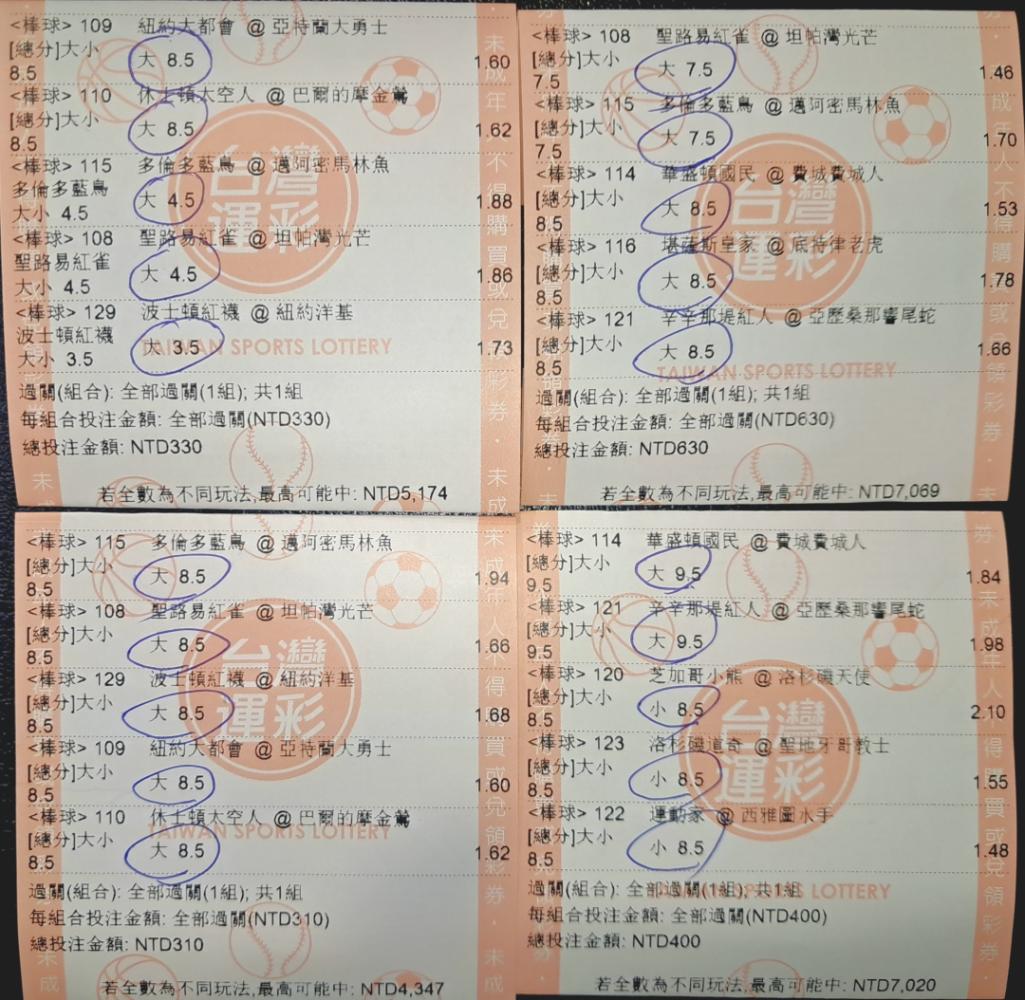 <棒球> 109 紐約大都會 @ 亞特蘭大勇士
[總分]大小
8.5
大 8.5
1.60
<棒球> 110 休士頓太空人 @ 巴爾的摩金鶯
[總分]大小
8.5
大 8.5
1.62
<棒球> 115 多倫多藍鳥 @ 邁阿密馬林魚
多倫多藍鳥
大小 4.5
大 4.5
1.88
<棒球> 108 聖路易紅雀 @ 坦帕灣光芒
聖路易紅雀
大小 4.5
大 4.5
1.86
<棒球> 129 波士頓紅襪 @ 紐約洋基
波士頓紅襪
大小 3.5
大 3.5
1.73
台灣
運彩
TAIWAN SPORTS LOTTERY
過關(組合): 全部過關(1組); 共1組
每組合投注金額: 全部過關(NTD330)
總投注金額: NTD330
若全數為不同玩法,最高可能中: NTD5,174
<棒球> 108 聖路易紅雀 @ 坦帕灣光芒
[總分]大小
7.5
大 7.5
1.46
<棒球> 115 多倫多藍鳥 @ 邁阿密馬林魚
[總分]大小
7.5
大 7.5
1.70
<棒球> 114 華盛頓國民 @ 費城費城人
[總分]大小
8.5
大 8.5
1.53
<棒球> 116 堪薩斯皇家 @ 底特律老虎
[總分]大小
8.5
大 8.5
1.78
<棒球> 121 辛辛那堤紅人 @ 亞歷桑那響尾蛇
[總分]大小
8.5
大 8.5
1.66
台灣
運彩
TAIWAN SPORTS LOTTERY
過關(組合): 全部過關(1組); 共1組
每組合投注金額: 全部過關(NTD630)
總投注金額: NTD630
若全數為不同玩法,最高可能中: NTD7,069
<棒球> 115 多倫多藍鳥 @ 邁阿密馬林魚
[總分]大小
8.5
大 8.5
1.94
<棒球> 108 聖路易紅雀 @ 坦帕灣光芒
[總分]大小
8.5
大 8.5
1.66
<棒球> 129 波士頓紅襪 @ 紐約洋基
[總分]大小
8.5
大 8.5
1.68
<棒球> 109 紐約大都會 @ 亞特蘭大勇士
[總分]大小
8.5
大 8.5
1.60
<棒球> 110 休士頓太空人 @ 巴爾的摩金鶯
[總分]大小
8.5
大 8.5
1.62
台灣
運彩
TAIWAN SPORTS LOTTERY
過關(組合): 全部過關(1組); 共1組
每組合投注金額: 全部過關(NTD310)
總投注金額: NTD310
若全數為不同玩法,最高可能中: NTD4,347
<棒球> 114 華盛頓國民 @ 費城費城人
[總分]大小
9.5
大 9.5
1.84
<棒球> 121 辛辛那堤紅人 @ 亞歷桑那響尾蛇
[總分]大小
9.5
大 9.5
1.98
<棒球> 120 芝加哥小熊 @ 洛杉磯天使
[總分]大小
8.5
小 8.5
2.10
<棒球> 123 洛杉磯道奇 @ 聖地牙哥教士
[總分]大小
8.5
小 8.5
1.55
<棒球> 122 運動家 @ 西雅圖水手
[總分]大小
8.5
小 8.5
1.48
台灣
運彩
SPORTS LOTTERY
過關(組合): 全部過關(1組); 共1組
每組合投注金額: 全部過關(NTD400)
總投注金額: NTD400
若全數為不同玩法,最高可能中: NTD7,020